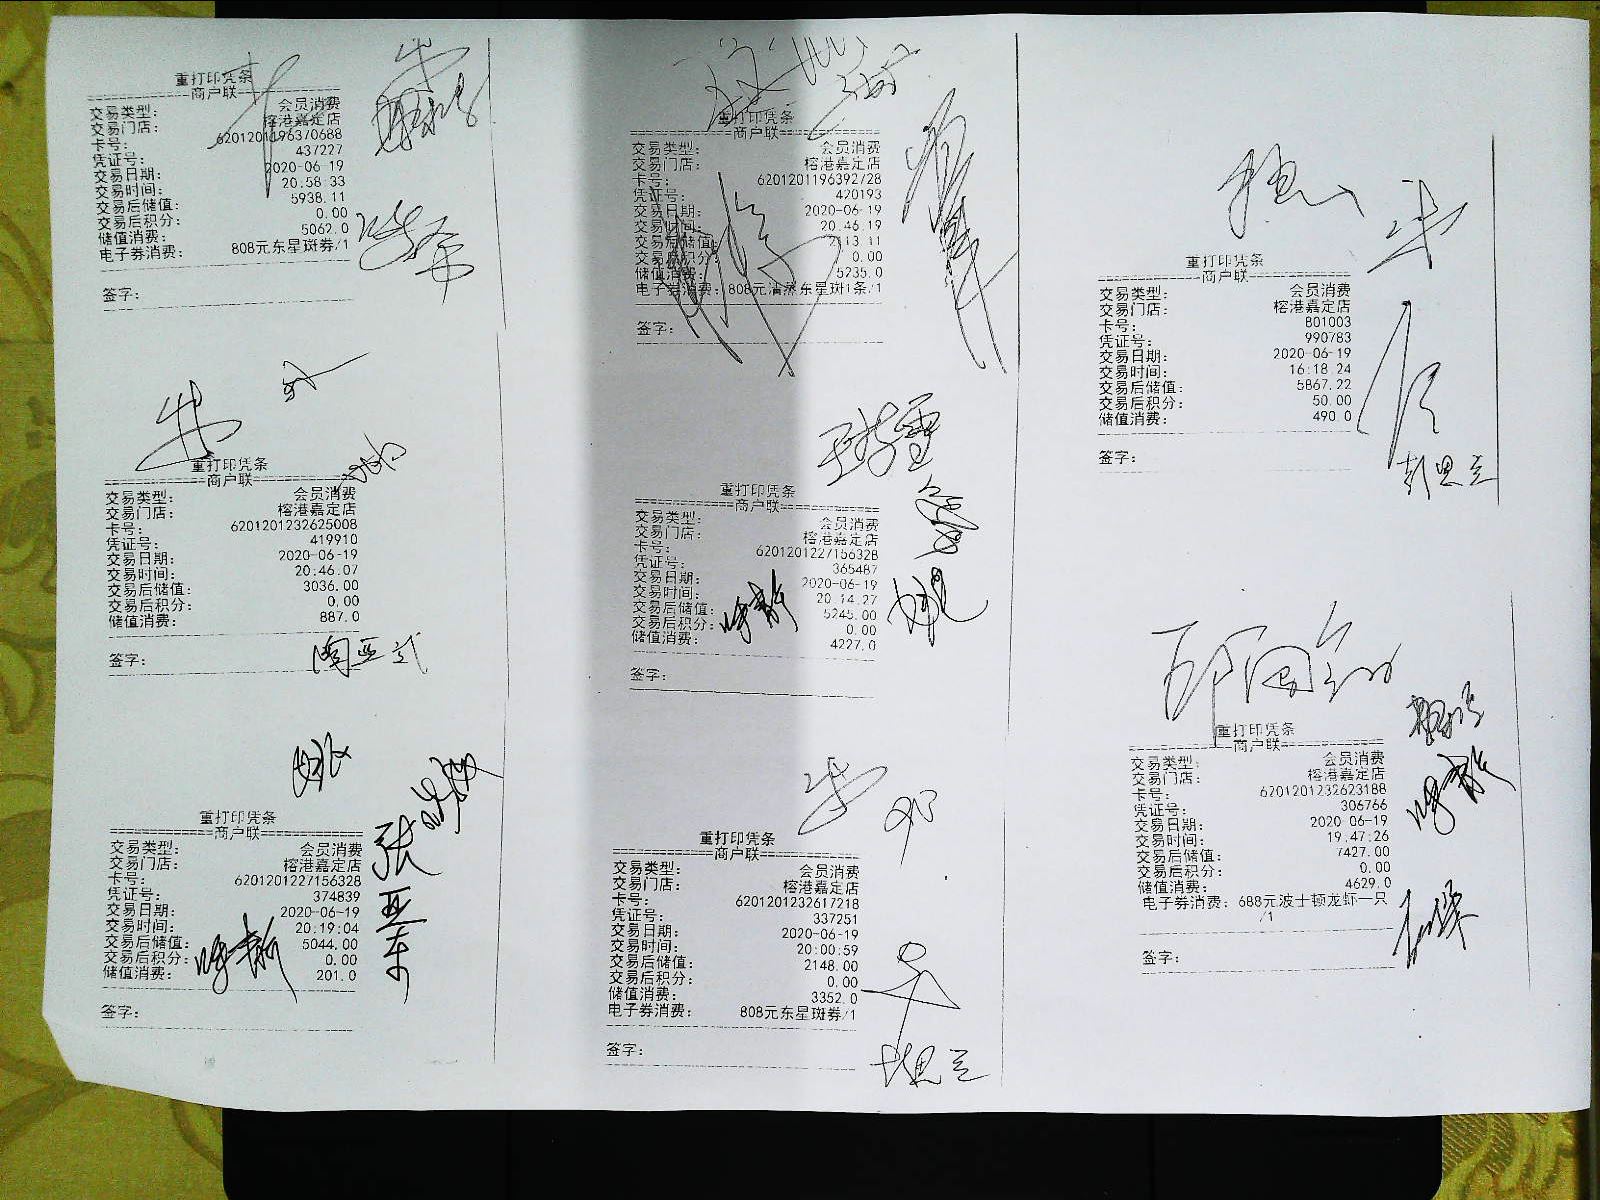 重打印凭条
商户联
交易类型: 会员消费
交易门店: 榕港嘉定店
卡号: 6201201196370688
凭证号: 437227
交易日期: 2020-06-19
交易时间: 20:58:33
交易后储值: 5938.11
交易后积分: 0.00
储值消费: 5062.0
电子券消费: 808元东星斑券/1
签字:
重打印凭条
商户联
交易类型: 会员消费
交易门店: 榕港嘉定店
卡号: 6201201232625008
凭证号: 419910
交易日期: 2020-06-19
交易时间: 20:46:07
交易后储值: 3036.00
交易后积分: 0.00
储值消费: 887.0
签字:
重打印凭条
商户联
交易类型: 会员消费
交易门店: 榕港嘉定店
卡号: 6201201227156328
凭证号: 374839
交易日期: 2020-06-19
交易时间: 20:19:04
交易后储值: 5044.00
交易后积分: 0.00
储值消费: 201.0
张亚东
签字:
重打印凭条
商户联
交易类型: 会员消费
交易门店: 榕港嘉定店
卡号: 6201201196392728
凭证号: 420193
交易日期: 2020-06-19
交易时间: 20:46:19
交易后储值:
交易后积分: 0.00
储值消费: 5235.0
电子券消费: 808元清蒸东星斑1条/1
签字:
重打印凭条
商户联
交易类型: 会员消费
交易门店: 榕港嘉定店
卡号: 6201201227156328
凭证号: 365487
交易日期: 2020-06-19
交易时间: 20:14:27
交易后储值: 5245.00
交易后积分: 0.00
储值消费: 4227.0
签字:
重打印凭条
商户联
交易类型: 会员消费
交易门店: 榕港嘉定店
卡号: 6201201232617218
凭证号: 337251
交易日期: 2020-06-19
交易时间: 20:00:59
交易后储值: 2148.00
交易后积分: 0.00
储值消费: 3352.0
电子券消费: 808元东星斑券/1
签字:
重打印凭条
商户联
交易类型: 会员消费
交易门店: 榕港嘉定店
卡号: 801003
凭证号: 990783
交易日期: 2020-06-19
交易时间: 16:18:24
交易后储值: 5867.22
交易后积分: 50.00
储值消费: 490.0
签字:
重打印凭条
商户联
交易类型: 会员消费
交易门店: 榕港嘉定店
卡号: 6201201232623188
凭证号: 306766
交易日期: 2020-06-19
交易时间: 19:47:26
交易后储值: 7427.00
交易后积分: 0.00
储值消费: 4629.0
电子券消费: 688元波士顿龙虾一只
/1
签字: